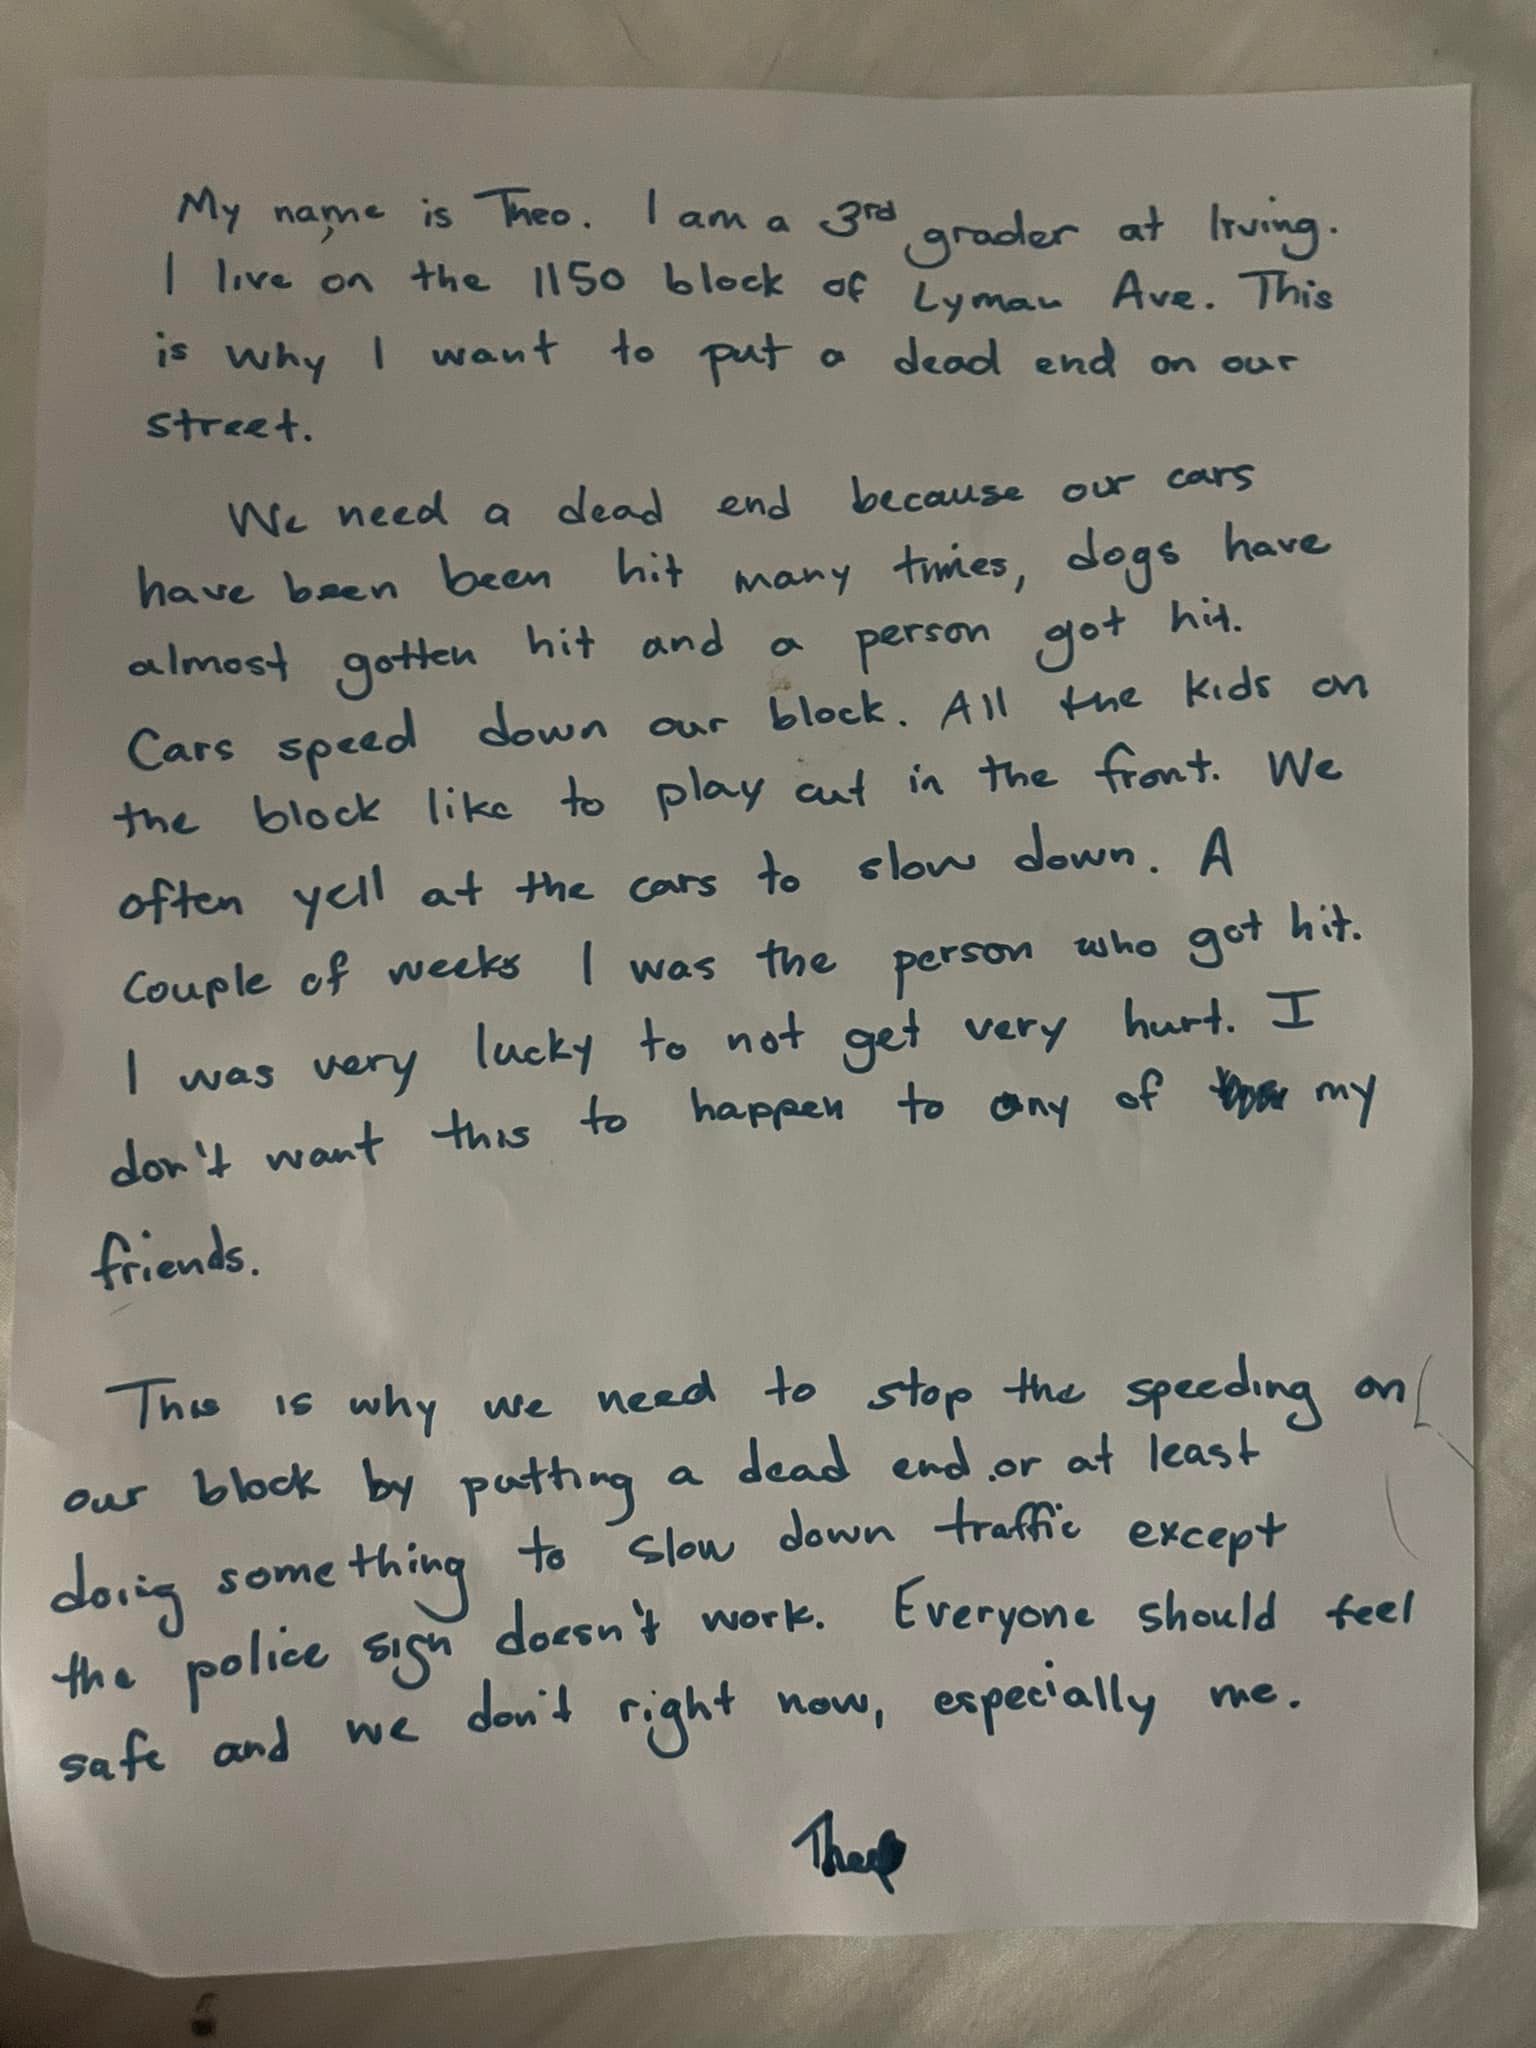 My name is Theo. I am a 3rd grader at Irving.
I live on the 1150 block of Lyman Ave. This
is why I want to put a dead end on our
street.
We need a dead end because our cars
have been been hit many times, dogs have
almost gotten hit and a person got hit.
Cars speed down our block. All the kids on
the block like to play out in the front. We
often yell at the cars to slow down. A
couple of weeks I was the person who got hit.
I was very lucky to not get very hurt. I
don't want this to happen to any of my
friends.
This is why we need to stop the speeding on
our block by putting a dead end or at least
doing something to slow down traffic except
the police sign doesn't work. Everyone should feel
safe and we don't right now, especially me.
Theo